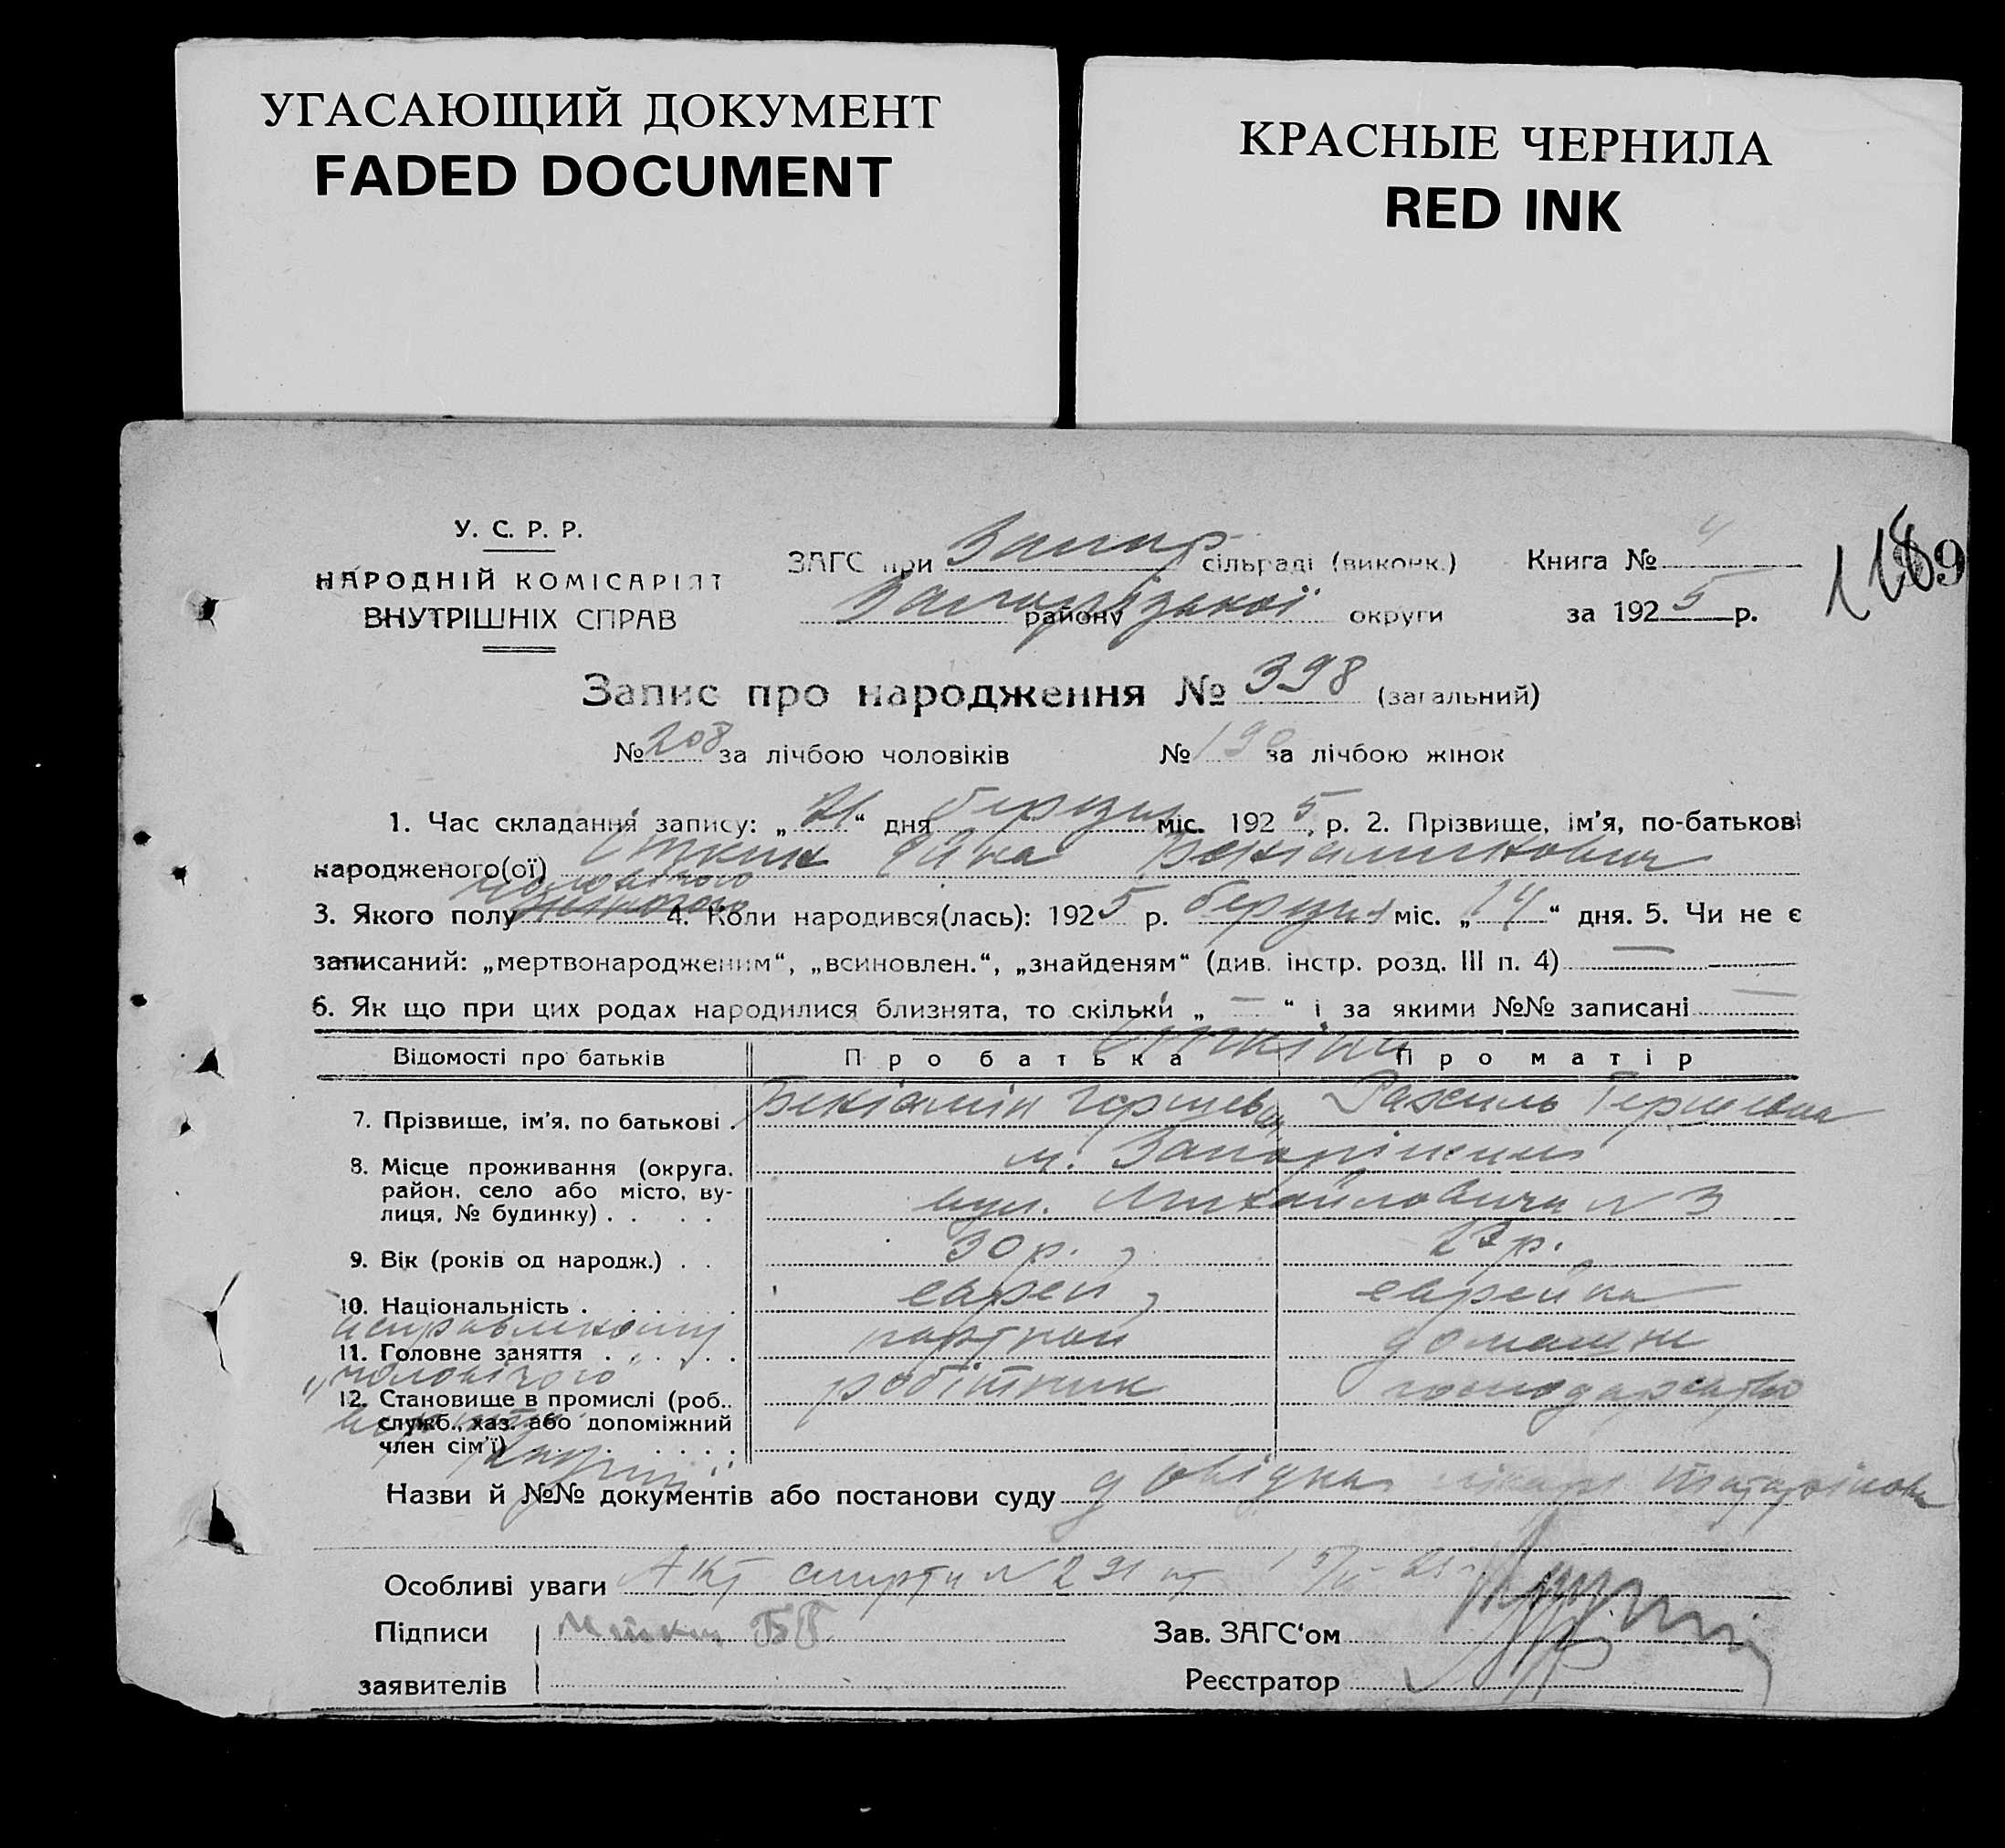 УГАСАЮЩИЙ ДОКУМЕНТ
FADED DOCUMENT
КРАСНЫЕ ЧЕРНИЛА
RED INK
У. С. Р. Р.
НАРОДНІЙ КОМІСАРІЯТ
ВНУТРІШНІХ СПРАВ
ЗАГС при Запор сільраді (виконк.)
Запорізької району округи
Книга № 4
за 1925 р.
Запис про народження № 398 (загальний)
№ 208 за лічбою чоловіків № 190 за лічбою жінок
1. Час складання запису: „21“ дня березня міс. 1925, р. 2. Прізвище, ім'я, по-батькові
народженого(ої)
чоловічого
3. Якого полу 4. Коли народився(лась): 1925 р. березня міс. „14“ дня. 5. Чи не є
записаний: „мертвонародженим“, „всиновлен.“, „знайденям“ (див. інстр. розд. III п. 4) —
6. Як що при цих родах народилися близнята, то скільки „ — “ і за якими №№ записані —
Відомості про батьків Про батька Про матір
7. Прізвище, ім'я, по батькові . Беніамін Гершев Рахиль Гершевна
8. Місце проживання (округа, район, село або місто, вулиця, № будинку) . . . . м. Запоріжжя
вул. Михайловича N 3
9. Вік (років од народж.) . . 30 р. 23 р.
10. Національність . . . . . . еврей, еврейка
11. Головне заняття . . . . . . портной домашнє
12. Становище в промислі (роб., служб., хаз. або допоміжний член сім'ї) . . . . робітник господарство
исправленому
„чоловічого
Назви й №№ документів або постанови суду довідка лікаря
Особливі уваги Акт смерти N 291
Підписи заявителів
Зав. ЗАГС‘ом
Реєстратор